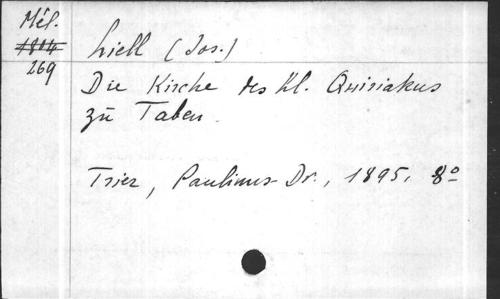 Mél.
1814
269
Liell (Jos.)
Die Kirche des Hl. Quiriakus
zu Taben.
Trier, Paulinus-Dr., 1895, 8°